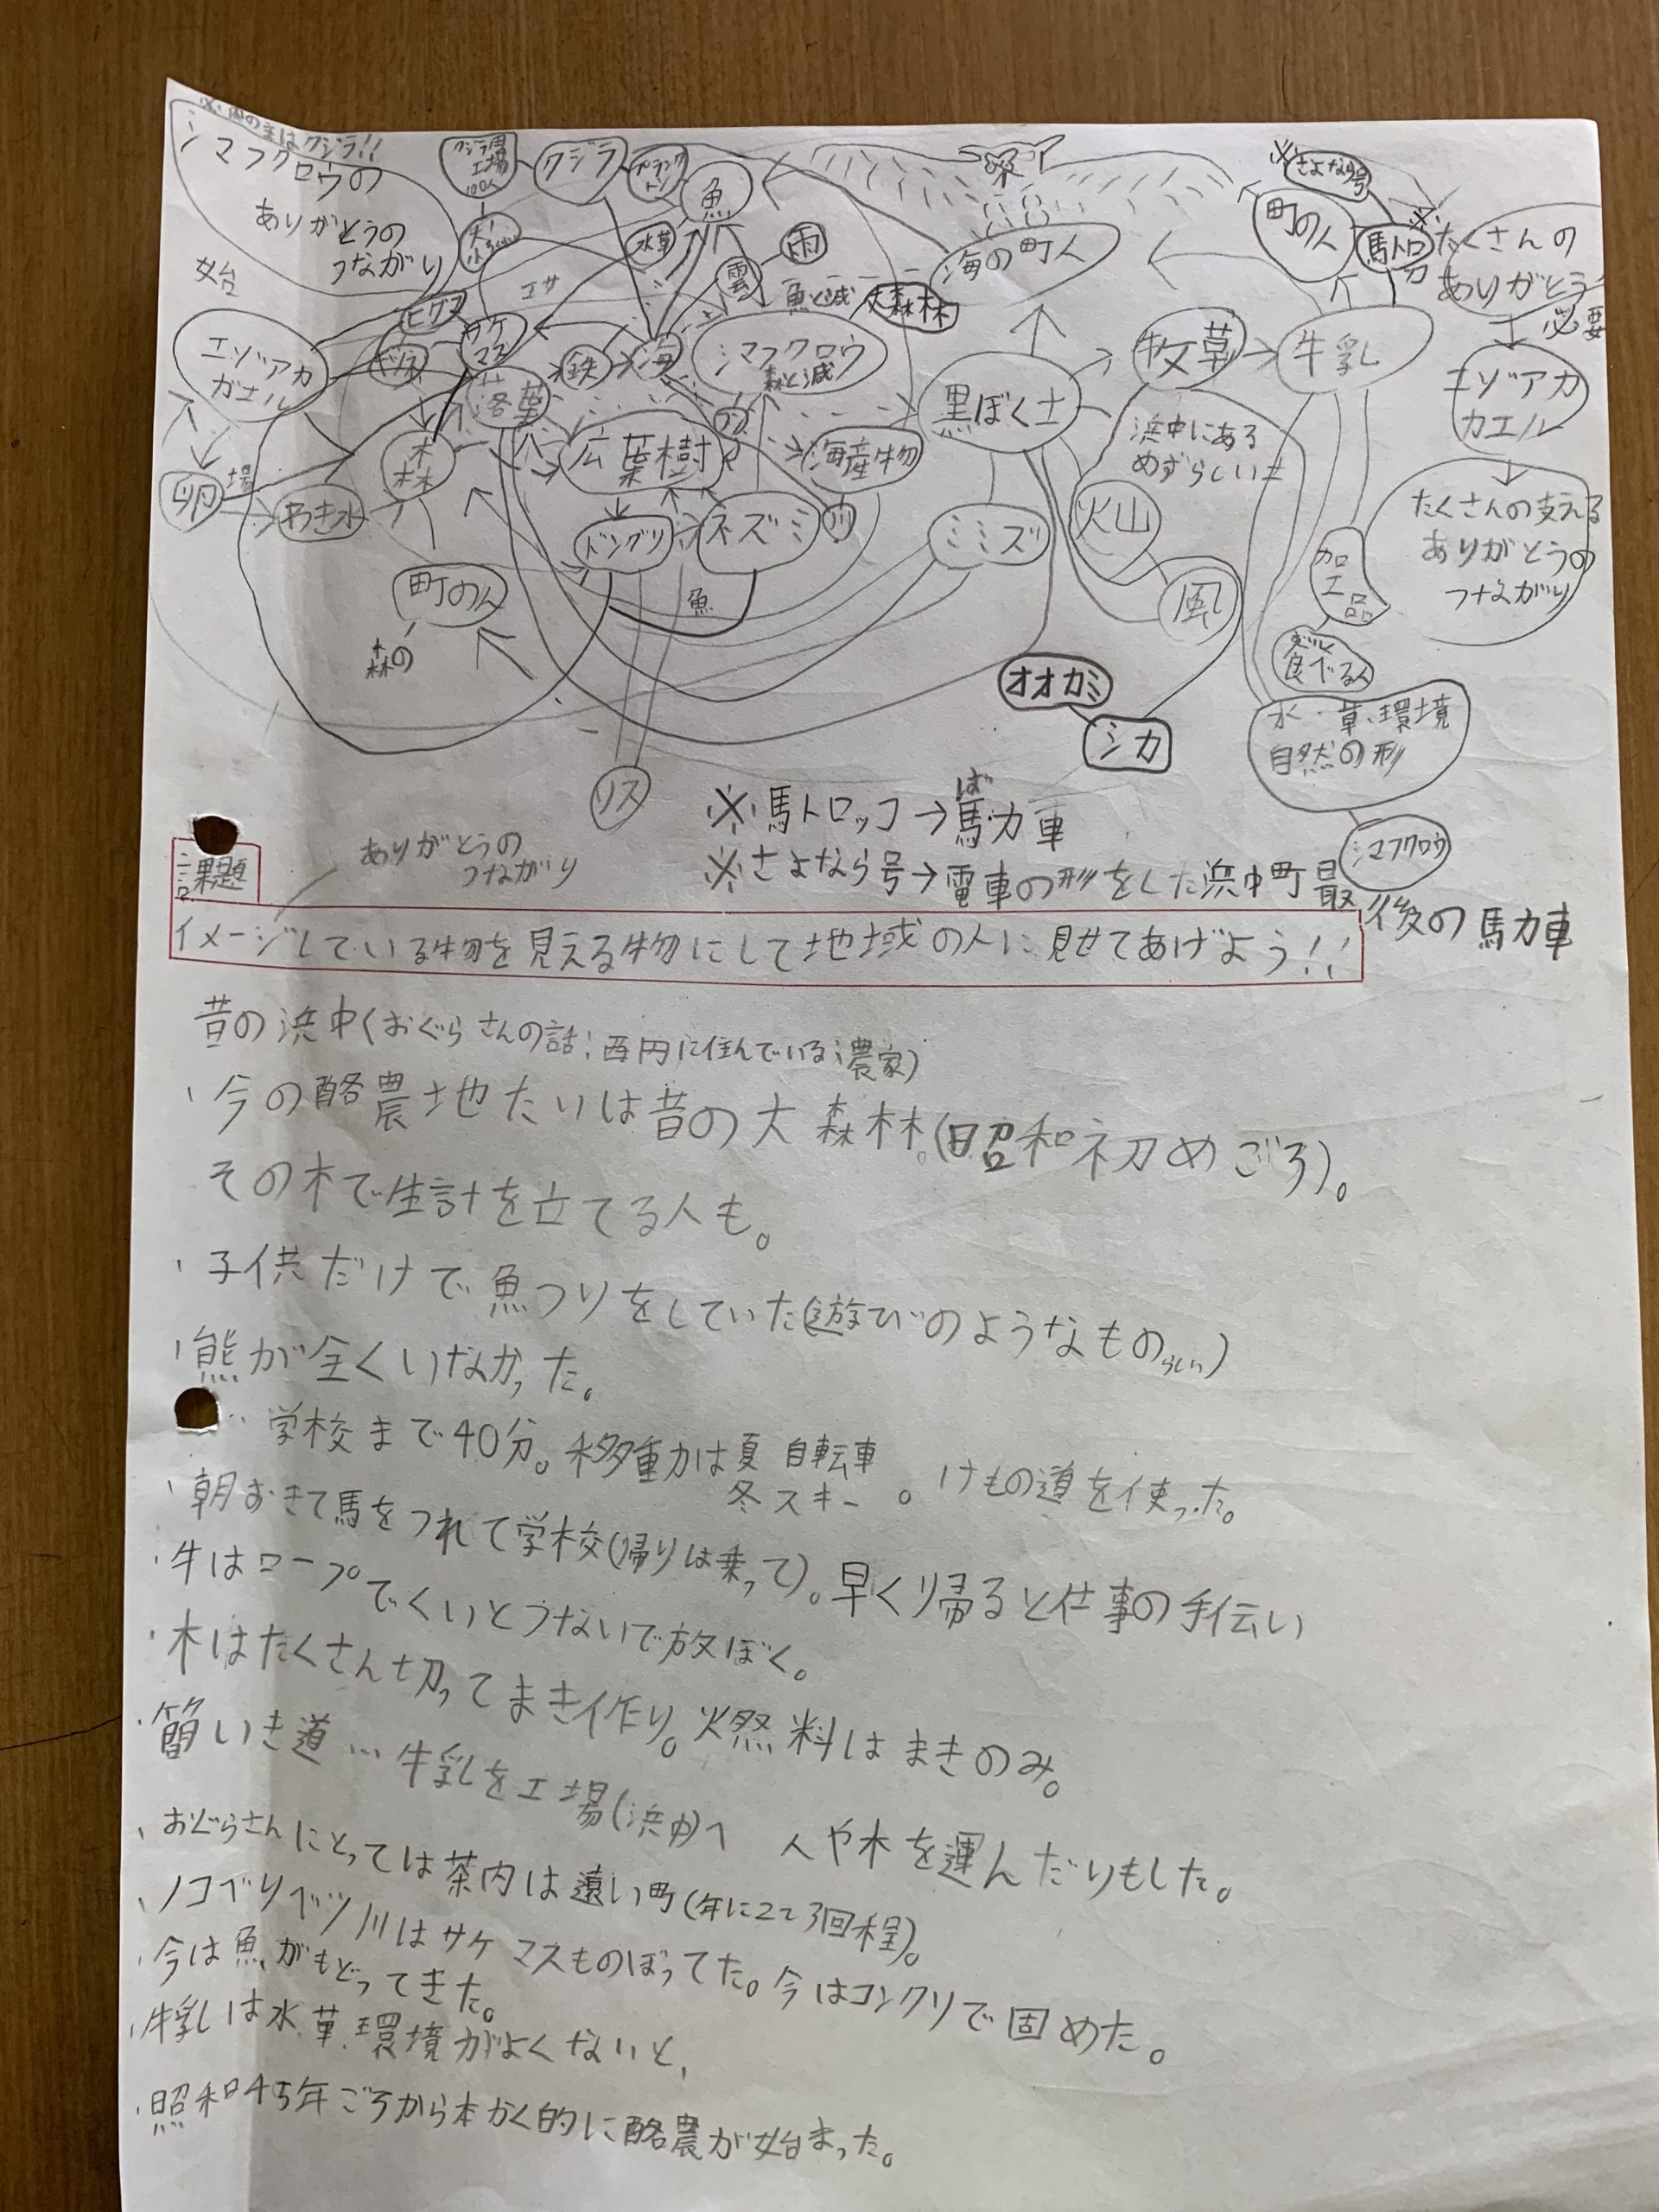 シマフクロウの
ありがとうの
つながり
始
クジラ
プランクトン
魚
水草
雲
雨
エサ
ヒグマ
キツネ
サケ
マス
鉄
海
魚と減
大森林
シマフクロウ
森と減
海の町人
町の人
さよなら号
馬トロ
たくさんの
ありがとう
必要
エゾアカ
ガエル
落葉
広葉樹
海産物
黒ぼく土
牧草
牛乳
エゾアカ
カエル
浜中にある
めずらしい土
卵
場
わき水
森
ドングリ
ネズミ
川
ミミズ
火山
風
加工品
食べる人
たくさんの支える
ありがとうの
つながり
町の人
森の
魚
オオカミ
シカ
水・草・環境
自然の形
リス
シマフクロウ
※馬トロッコ→馬力車
ば
※さよなら号→電車の形をした浜中町最後の馬力車
ありがとうの
つながり
課題
イメージしている物を見える物にして地域の人に見せてあげよう!!
昔の浜中(おぐらさんの話:西円に住んでいる農家)
・今の酪農地たいは昔の大森林。(昭和初めごろ)。
その木で生計を立てる人も。
・子供だけで魚つりをしていた(遊びのようなものらしい)
・熊が全くいなかった。
・学校まで40分。移動は夏 自転車 冬 スキー。けもの道を使った。
・朝おきて馬をつれて学校(帰りは乗って)。早く帰ると仕事の手伝い
・牛はロープでくいとつないで放ぼく。
・木はたくさん切ってまき作り。燃料はまきのみ。
・簡いき道…牛乳を工場(浜中)へ 人や木を運んだりもした。
・おぐらさんにとっては茶内は遠い町(年に2て3回程)。
・ノコベリベツ川はサケマスものぼってた。今はコンクリで固めた。
・今は魚がもどってきた。
・牛乳は水、草、環境がよくないと、
・昭和45年ごろから本かく的に酪農が始まった。